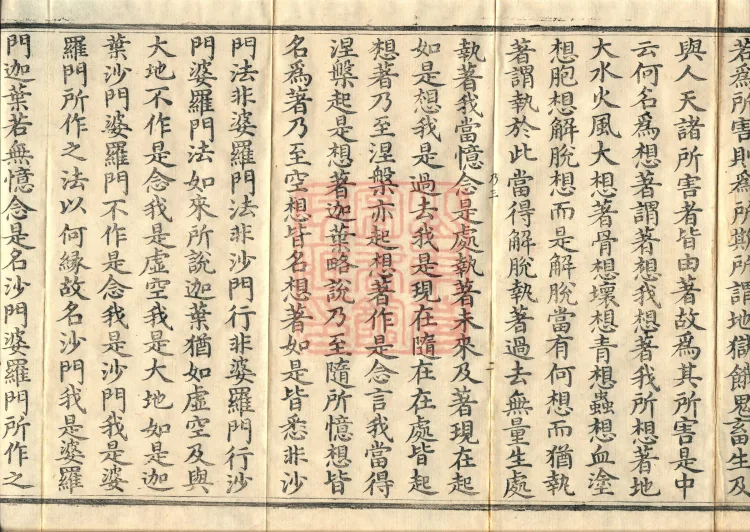 若為所害則為所欺所謂地獄餓鬼畜生及
與人天諸所害者皆由著故為其所害是中
云何名為想著謂著想我想著我所想著地
大水火風大想著骨想壞想青想蟲想血塗
想胞想解脫想而是解脫當有何想而猶執
著謂執於此當得解脫執著過去無量生處
乃三
執著我當憶念是處執著未來及著現在起
如是想我是過去我是現在隨在在處皆起
想著乃至涅槃亦起想著作是念言我當得
涅槃起是想著迦葉略說乃至隨所憶想皆
名為著乃至空想皆名想著如是皆悉非沙
門法非婆羅門法非沙門行非婆羅門行沙
門婆羅門法如來所說迦葉猶如虛空及與
大地不作是念我是虛空我是大地如是迦
葉沙門婆羅門不作是念我是沙門我是婆
羅門所作之法以何緣故名沙門我是婆羅
門迦葉若無憶念是名沙門婆羅門所作之